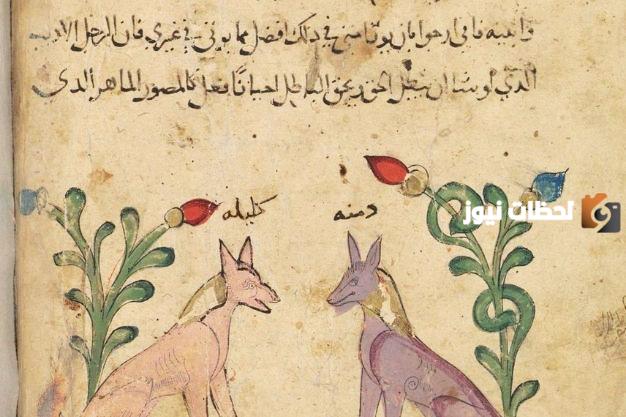 وانبيه فاني ارجوا بان يوتا مني في ذلك افضل مما يوتي في غيري فان الرجل الاديب
الذي لو شا ان يبطل الحق ويحق الباطل احيانًا فعل كالمصور الماهر الذي
كليله
دمنه
لحظات نيوز